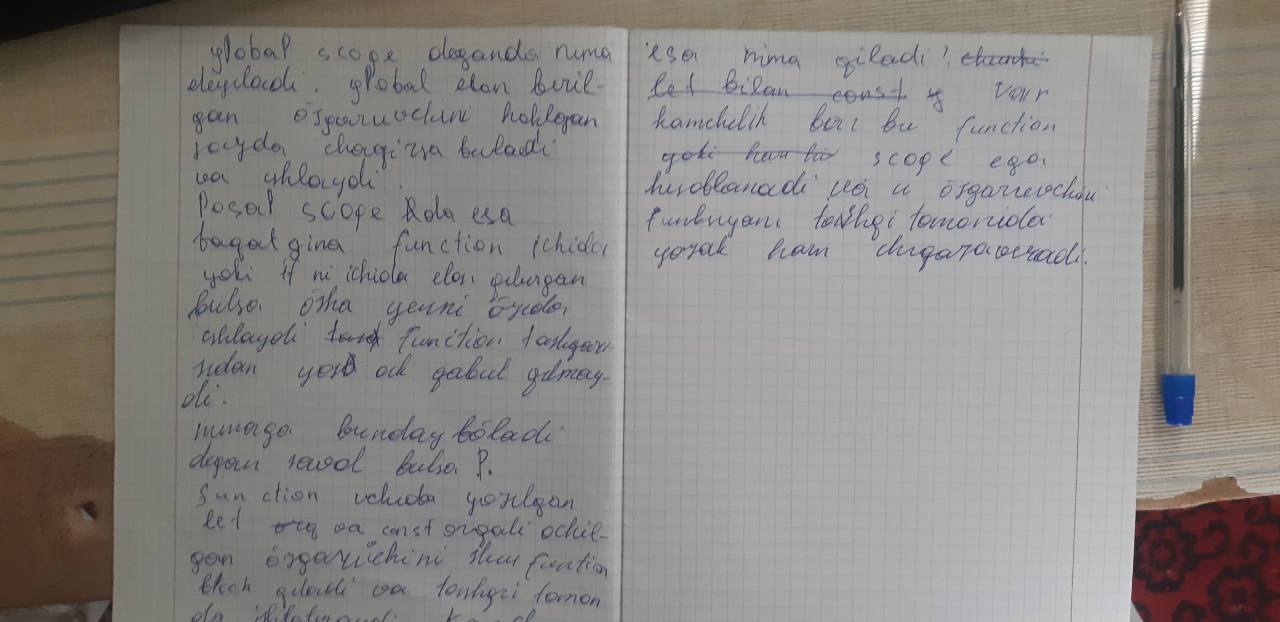 global scope deganda nima
deyiladi. global elon beril-
gan özgaruvchini hohlagan
joyda chaqirsa buladi
va ishlaydi.
Local scope da esa
faqatgina function ichida
yoki if ni ichida elon qilingan
bulsa ösha yerni özida
ishlaydi function tashqari-
sidan yozsak qabul qilmay-
di.
nimaga bunday böladi
degan savol bulsa ?.
function ichida yozilgan
let va const orqali ochil-
gan özgaruvchini shu function
block qiladi va tashqri tomon
da
esa nima qiladi? chunki
let bilan const Var
kamchilik bor bu function
yoki scope ega
hisoblanadi va u özgaruvchini
funksiyani tashqi tomonida
yozsak ham chiqaraveradi.